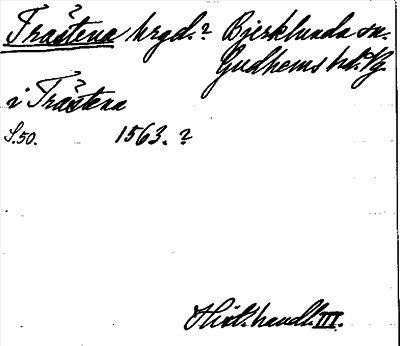 Trästena hrgd.? Bjerklunda sn.
Gudhems hd. Vg.
i Trästena
S. 50. 1563. ?
Hist. handl. III.